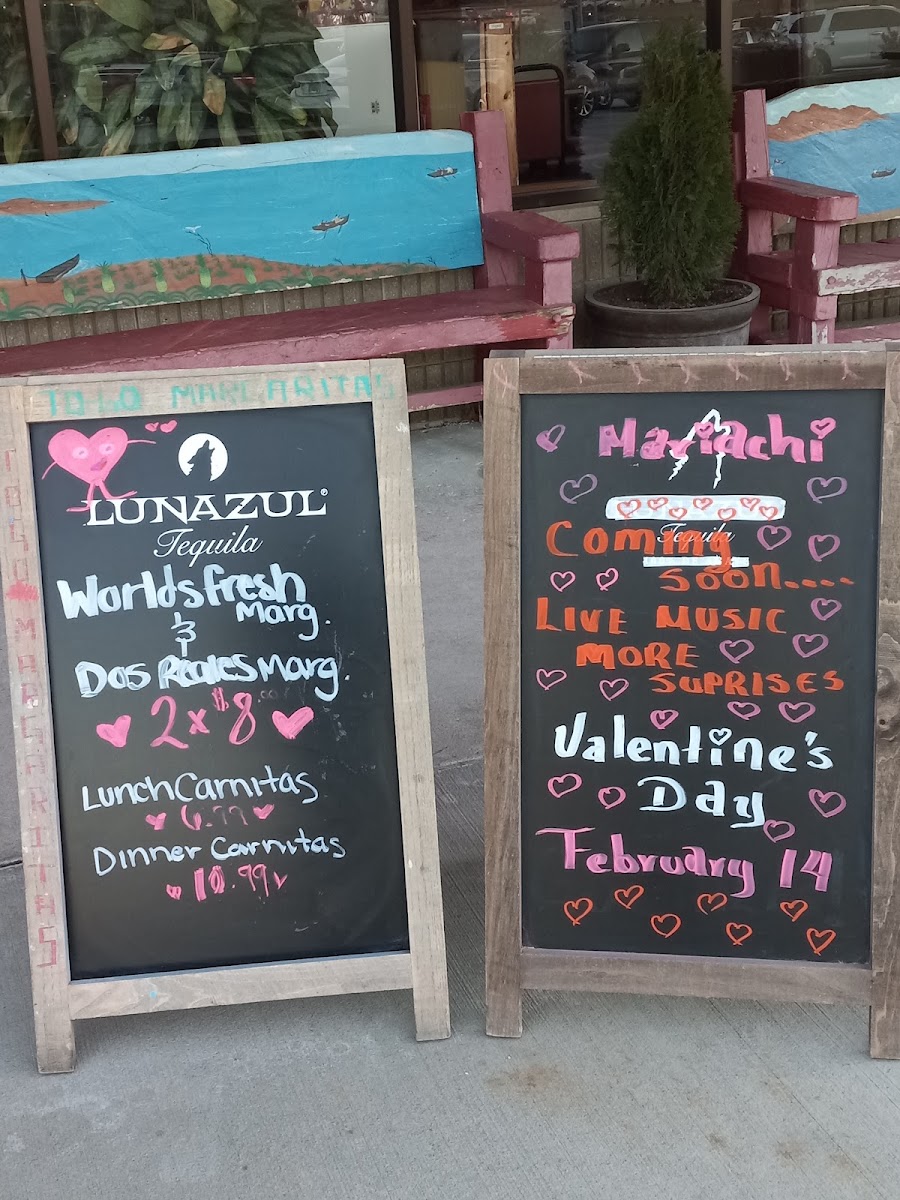 TO GO MARGARITAS
TO GO MARGARITAS
LUNAZUL®
Tequila
Worlds fresh
Marg.
&
Dos Reales Marg.
2x $8.00
Lunch Carnitas
6.99
Dinner Carnitas
10.99
Mariachi
Tequila
Coming
soon....
LIVE MUSIC
MORE
SUPRISES
Valentine's
Day
February 14